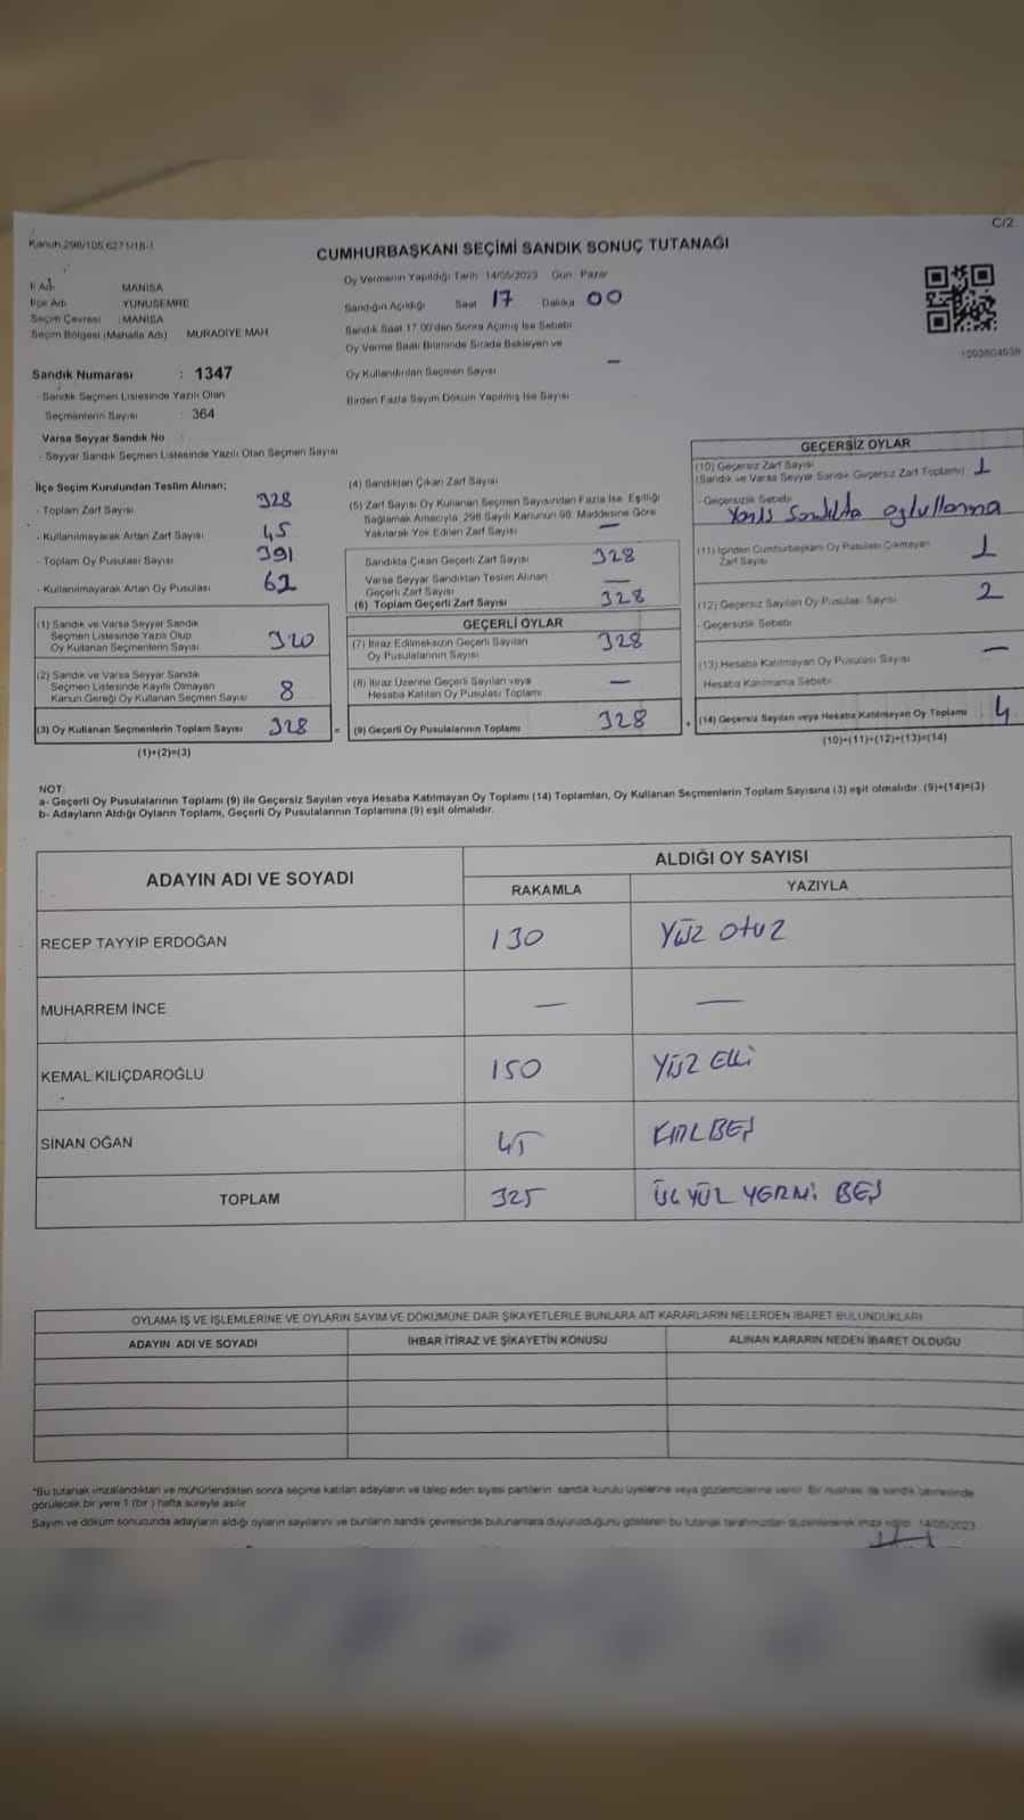 C/2
CUMHURBAŞKANI SEÇİMİ SANDIK SONUÇ TUTANAĞI
Oy Vermenin Yapıldığı Tarih 14/05/2023 Gün Pazar
İl Adı MANİSA
İlçe Adı YUNUSEMRE
Seçim Çevresi MANİSA
Seçim Bölgesi (Mahalle Adı) MURADİYE MAH
Sandık Numarası : 1347
- Sandık Seçmen Listesinde Yazılı Olan
Seçmenlerin Sayısı 364
Varsa Seyyar Sandık No
- Seyyar Sandık Seçmen Listesinde Yazılı Olan Seçmen Sayısı
Sandığın Açıldığı Saat 17 Dakika 00
Sandık Saat 17.00'den Sonra Açılmış İse Sebebi
Oy Verme Saati Bitiminde Sırada Bekleyen ve
Oy Kullandırılan Seçmen Sayısı —
Birden Fazla Sayım Döküm Yapılmış İse Sayısı
İlçe Seçim Kurulundan Teslim Alınan;
- Toplam Zarf Sayısı 328
- Kullanılmayarak Artan Zarf Sayısı 45
- Toplam Oy Pusulası Sayısı 391
- Kullanılmayarak Artan Oy Pusulası 62
(1) Sandık ve Varsa Seyyar Sandık
Seçmen Listesinde Yazılı Olup
Oy Kullanan Seçmenlerin Sayısı 320
(2) Sandık ve Varsa Seyyar Sandık
Seçmen Listesinde Kayıtlı Olmayan
Kanun Gereği Oy Kullanan Seçmen Sayısı 8
(3) Oy Kullanan Seçmenlerin Toplam Sayısı 328
(1)+(2)=(3)
(4) Sandıktan Çıkan Zarf Sayısı
(5) Zarf Sayısı Oy Kullanan Seçmen Sayısından Fazla İse, Eşitliği
Sağlamak Amacıyla, 298 Sayılı Kanunun 98. Maddesine Göre
Yakılarak Yok Edilen Zarf Sayısı —
Sandıkta Çıkan Geçerli Zarf Sayısı 328
Varsa Seyyar Sandıktan Teslim Alınan
Geçerli Zarf Sayısı —
(6) Toplam Geçerli Zarf Sayısı 328
GEÇERLİ OYLAR
(7) İtiraz Edilmeksizin Geçerli Sayılan
Oy Pusulalarının Sayısı 328
(8) İtiraz Üzerine Geçerli Sayılan veya
Hesaba Katılan Oy Pusulası Toplamı —
(9) Geçerli Oy Pusulalarının Toplamı 328
GEÇERSİZ OYLAR
(10) Geçersiz Zarf Sayısı
(Sandık ve Varsa Seyyar Sandık Geçersiz Zarf Toplamı) 1
- Geçersizlik Sebebi
(11) İçinden Cumhurbaşkanı Oy Pusulası Çıkmayan
Zarf Sayısı 1
(12) Geçersiz Sayılan Oy Pusulası Sayısı 2
- Geçersizlik Sebebi
(13) Hesaba Katılmayan Oy Pusulası Sayısı —
Hesaba Katılmama Sebebi
(14) Geçersiz Sayılan veya Hesaba Katılmayan Oy Toplamı 4
(10)+(11)+(12)+(13)=(14)
NOT:
a- Geçerli Oy Pusulalarının Toplamı (9) ile Geçersiz Sayılan veya Hesaba Katılmayan Oy Toplamı (14) Toplamları, Oy Kullanan Seçmenlerin Toplam Sayısına (3) eşit olmalıdır. (9)+(14)=(3)
b- Adayların Aldığı Oyların Toplamı, Geçerli Oy Pusulalarının Toplamına (9) eşit olmalıdır.
ADAYIN ADI VE SOYADI
ALDIĞI OY SAYISI
RAKAMLA YAZIYLA
RECEP TAYYİP ERDOĞAN 130 YÜZ OTUZ
MUHARREM İNCE — —
KEMAL KILIÇDAROĞLU 150 YÜZ ELLİ
SİNAN OĞAN 45 KIRKBEŞ
TOPLAM 325 ÜÇ YÜZ YERMİ BEŞ
OYLAMA İŞ VE İŞLEMLERİNE VE OYLARIN SAYIM VE DÖKÜMÜNE DAİR ŞİKAYETLERLE BUNLARA AİT KARARLARIN NELERDEN İBARET BULUNDUKLARI
ADAYIN ADI VE SOYADI İHBAR İTİRAZ VE ŞİKAYETİN KONUSU ALINAN KARARIN NEDEN İBARET OLDUĞU
*Bu tutanak imzalandıktan ve mühürlendikten sonra seçime katılan adayların ve talep eden siyasi partilerin sandık kurulu üyelerine veya gözlemcilerine verilir. Bir nüshası da sandık çevresinde
görülecek bir yere 1 (bir) hafta süreyle asılır.
Sayım ve döküm sonucunda adayların aldığı oyların sayılarını ve bunların sandık çevresinde bulunanlara duyurulduğunu gösteren bu tutanak tarafımızdan düzenlenerek imza edildi. 14/05/2023